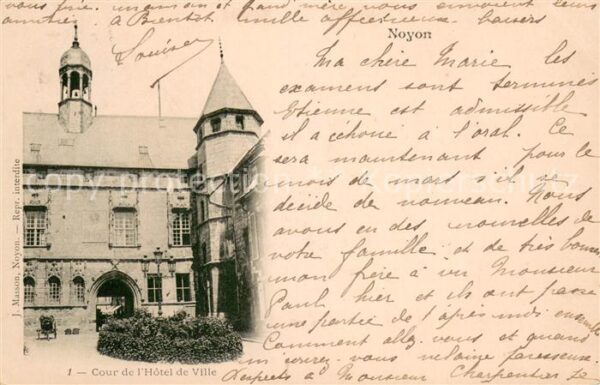 vous prie. maman et grand'mère vous envoient leurs
amitiés à Bientôt mille affectueux baisers
Louise
Noyon
Ma chère Marie, les
examens sont terminés
Etienne est admissible
il a échoué à l'oral. Ce
sera maintenant pour le
mois de mars s'il se
décide de nouveau. Nous
avons eu des nouvelles de
votre famille et de très bonnes
mon père a vu Monsieur
Paul hier et ils ont passé
une partie de l'après midi ensemble
Comment allez vous et quand
écrirez vous vilaine paresseuse.
Respects à Monsieur Charpentier je
J. Masson, Noyon. — Repr. interdite
1 — Cour de l'Hôtel de Ville